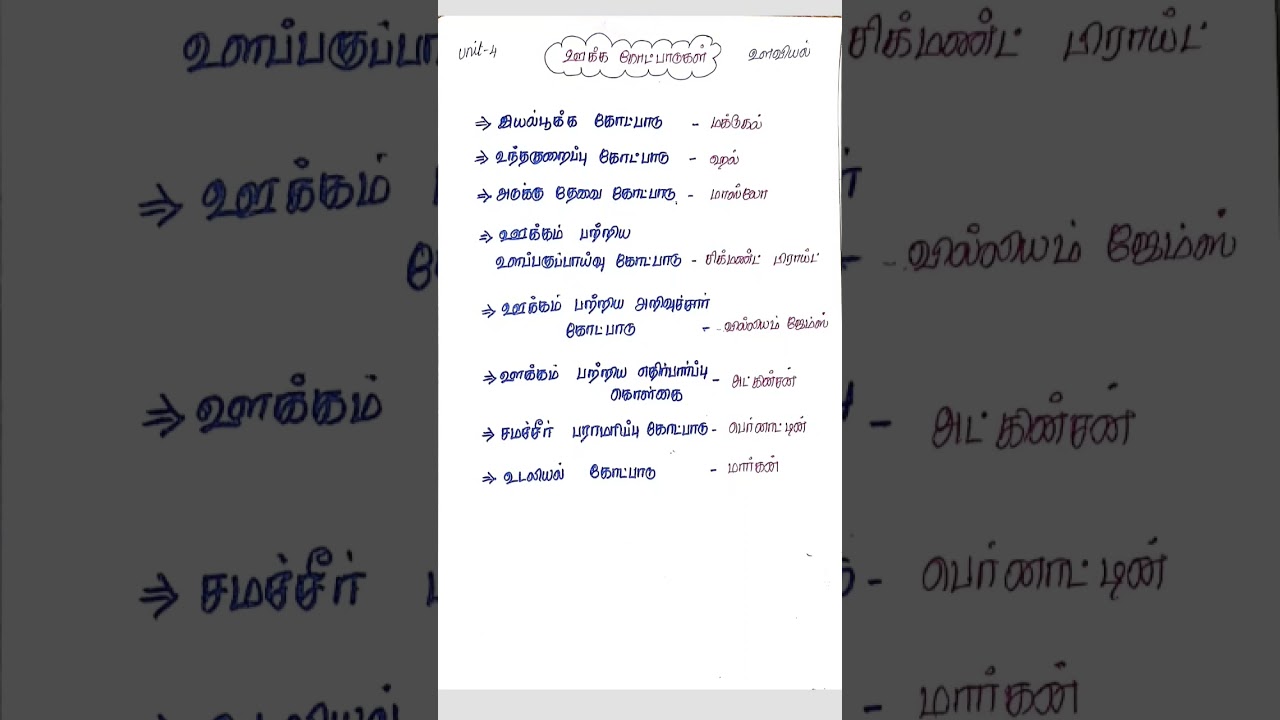 பாட்-4 ஊக்க கோட்பாடுகள் உளவியல்
⇒ இயல்பூக்க கோட்பாடு - மக்டுகல்
⇒ உந்தகுறைப்பு கோட்பாடு - ஹல்
⇒ அடுக்கு தேவை கோட்பாடு - மாஸ்லோ
⇒ ஊக்கம் பற்றிய
உளப்பகுப்பாய்வு கோட்பாடு - சிக்மண்ட் பிராய்ட்
⇒ ஊக்கம் பற்றிய அறிவுச்சார்
கோட்பாடு - வில்லியம் ஜேம்ஸ்
⇒ ஊக்கம் பற்றிய எதிர்பார்ப்பு
கொள்கை - அட்கின்சன்
⇒ சமச்சீர் பராமரிப்பு கோட்பாடு - பெர்னாட்டின்
⇒ உடலியல் கோட்பாடு - மார்கன்